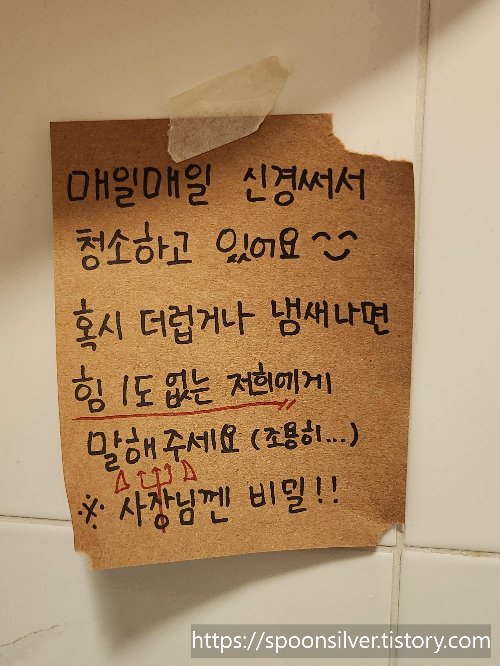 매일매일 신경써서
청소하고 있어요 ^^
혹시 더럽거나 냄새나면
힘 1도 없는 저희에게
말해주세요 (조용히...)
※ 사장님껜 비밀!!
https://spoonsilver.tistory.com